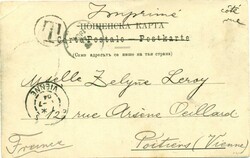 Imprimé côté
ПОЩЕНСКА КАРТА
Carte Postale — Postkarte
(Само адресътъ се пише на тая страна)
Melle Zelyne Leroy
VIENNE
122 rue Arsène Orillard
Poitiers (Vienne)
France